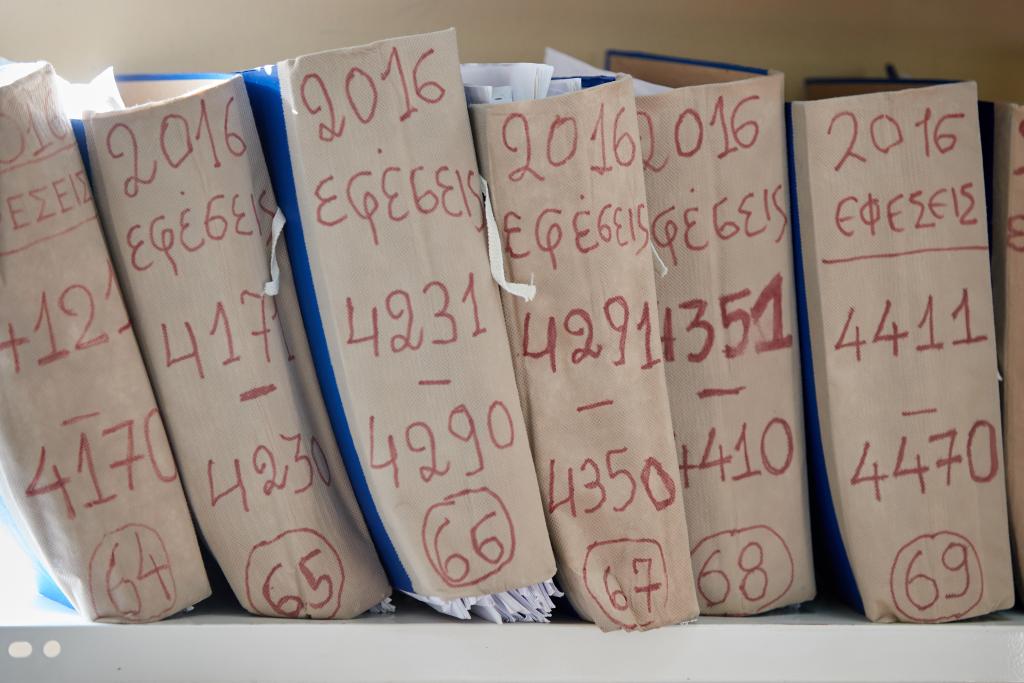 2016
ΕΣΕΙΣ
4121
4170
64
2016
εφέσεις
4171
-
4230
65
2016
εφέσεις
4231
-
4290
66
2016
εφέσεις
4291
-
4350
67
2016
φέσεις
4351
-
4410
68
2016
ΕΦΕΣΕΙΣ
4411
-
4470
69